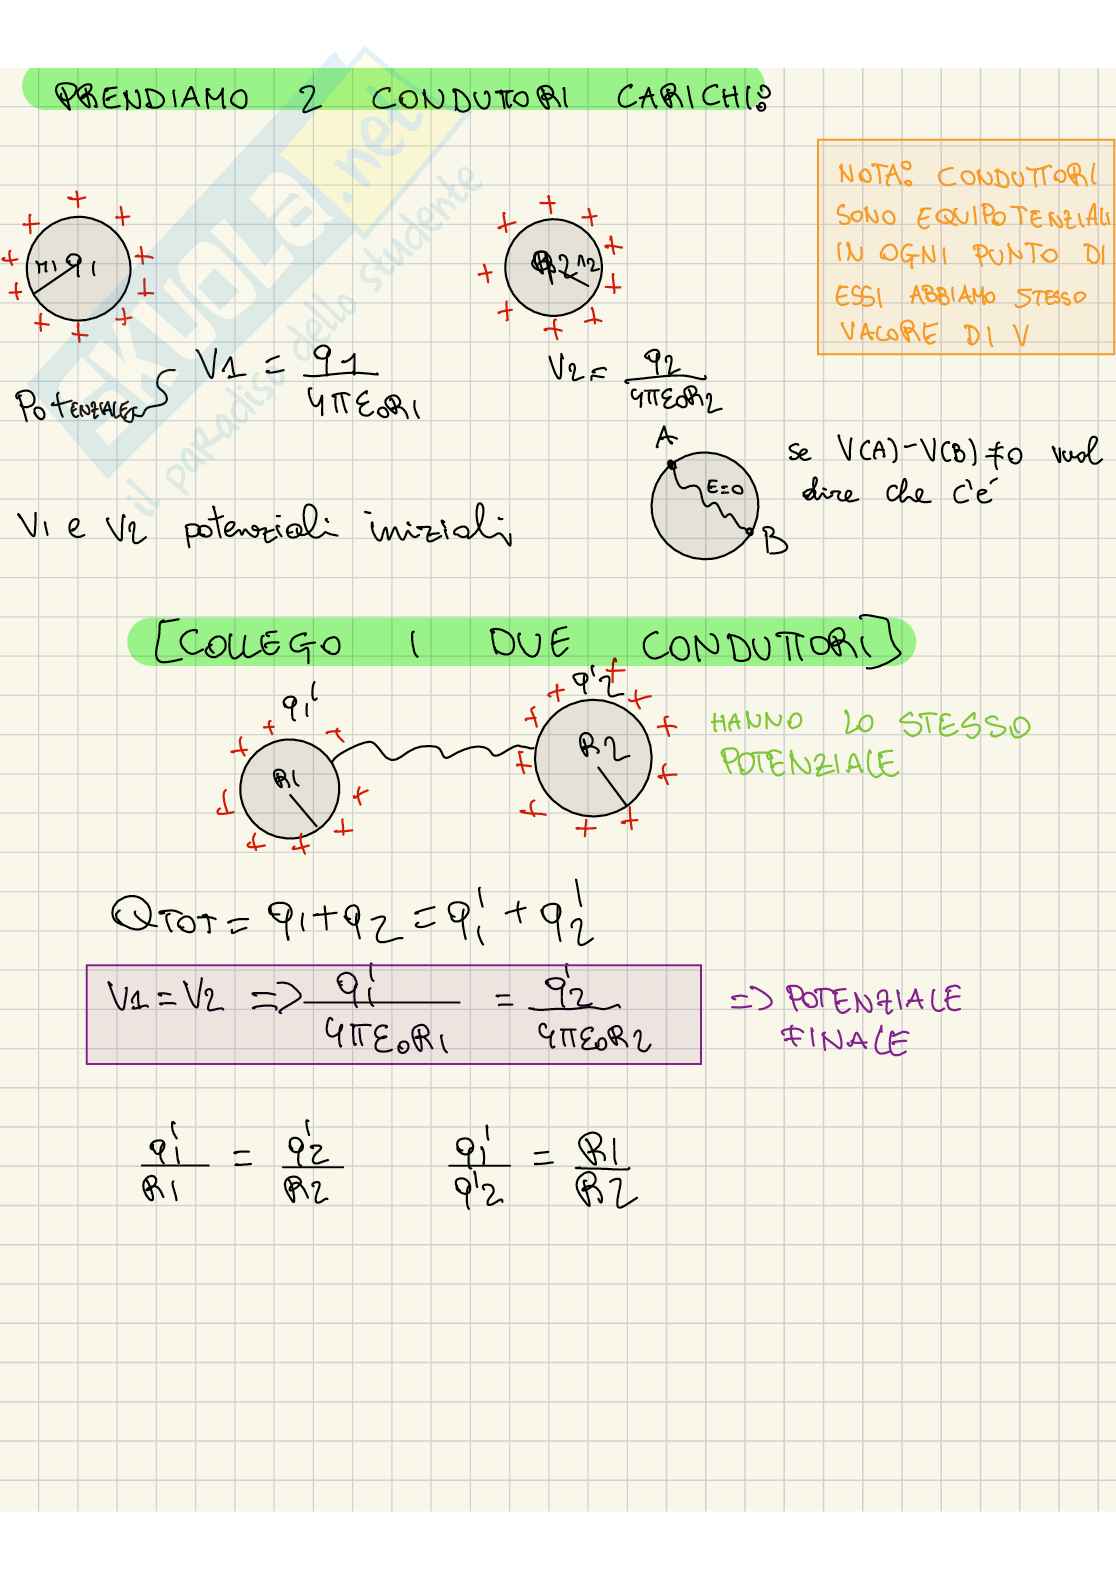 PRENDIAMO 2 CONDUTTORI CARICHI:
NOTA: CONDUTTORI
SONO EQUIPOTENZIALI
IN OGNI PUNTO DI
ESSI ABBIAMO STESSO
VALORE DI V
r1 q1
R2 r2
V1 = q1 / 4πε0R1
V2 = q2 / 4πε0R2
POTENZIALE
A
se V(A)-V(B) ≠0 vuol
dire che c'é
E=0
B
V1 e V2 potenziali iniziali
[COLLEGO I DUE CONDUTTORI]
q1' q'2
R1 R2
HANNO LO STESSO
POTENZIALE
QTOT = q1+q2 = q1' + q2'
V1 = V2 => q1' / 4πε0R1 = q'2 / 4πε0R2
=> POTENZIALE
FINALE
q1' / R1 = q'2 / R2 q1' / q'2 = R1 / R2
SKUOLA.net
il paradiso dello studente